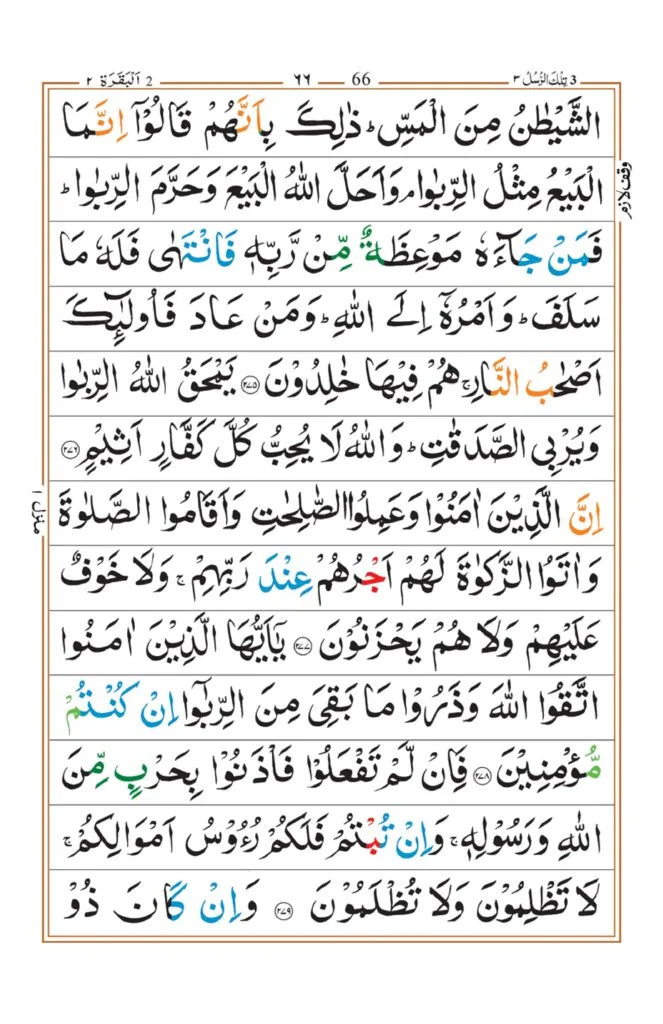 تِلْكَ الرُّسُلُ ٣ 3 66 ٦٦ 2 اَلْبَقَرَة ٢
الشَّيْطٰنُ مِنَ الْمَسِّ ؕ ذٰلِكَ بِاَنَّهُمْ قَالُوْۤا اِنَّمَا
الْبَيْعُ مِثْلُ الرِّبٰوا ۘ وَاَحَلَّ اللّٰهُ الْبَيْعَ وَحَرَّمَ الرِّبٰوا ؕ
وقف لازم
فَمَنْ جَآءَهٗ مَوْعِظَةٌ مِّنْ رَّبِّهٖ فَانْتَهٰى فَلَهٗ مَا
سَلَفَ ؕ وَاَمْرُهٗۤ اِلَى اللّٰهِ ؕ وَمَنْ عَادَ فَاُولٰٓئِكَ
اَصْحٰبُ النَّارِ ۚ هُمْ فِيْهَا خٰلِدُوْنَ ﴿۲۷۵﴾ يَمْحَقُ اللّٰهُ الرِّبٰوا
وَيُرْبِى الصَّدَقٰتِ ؕ وَاللّٰهُ لَا يُحِبُّ كُلَّ كَفَّارٍ اَثِيْمٍ ﴿۲۷۶﴾
اِنَّ الَّذِيْنَ اٰمَنُوْا وَعَمِلُوا الصّٰلِحٰتِ وَاَقَامُوا الصَّلٰوةَ
منزل ١
وَاٰتَوُا الزَّكٰوةَ لَهُمْ اَجْرُهُمْ عِنْدَ رَبِّهِمْ ۚ وَلَا خَوْفٌ
عَلَيْهِمْ وَلَا هُمْ يَحْزَنُوْنَ ﴿۲۷۷﴾ يٰۤاَيُّهَا الَّذِيْنَ اٰمَنُوا
اتَّقُوا اللّٰهَ وَذَرُوْا مَا بَقِىَ مِنَ الرِّبٰۤوا اِنْ كُنْتُمْ
مُّؤْمِنِيْنَ ﴿۲۷۸﴾ فَاِنْ لَّمْ تَفْعَلُوْا فَاْذَنُوْا بِحَرْبٍ مِّنَ
اللّٰهِ وَرَسُوْلِهٖ ۚ وَاِنْ تُبْتُمْ فَلَكُمْ رُءُوْسُ اَمْوَالِكُمْ ۚ
لَا تَظْلِمُوْنَ وَلَا تُظْلَمُوْنَ ﴿۲۷۹﴾ وَاِنْ كَانَ ذُوْ